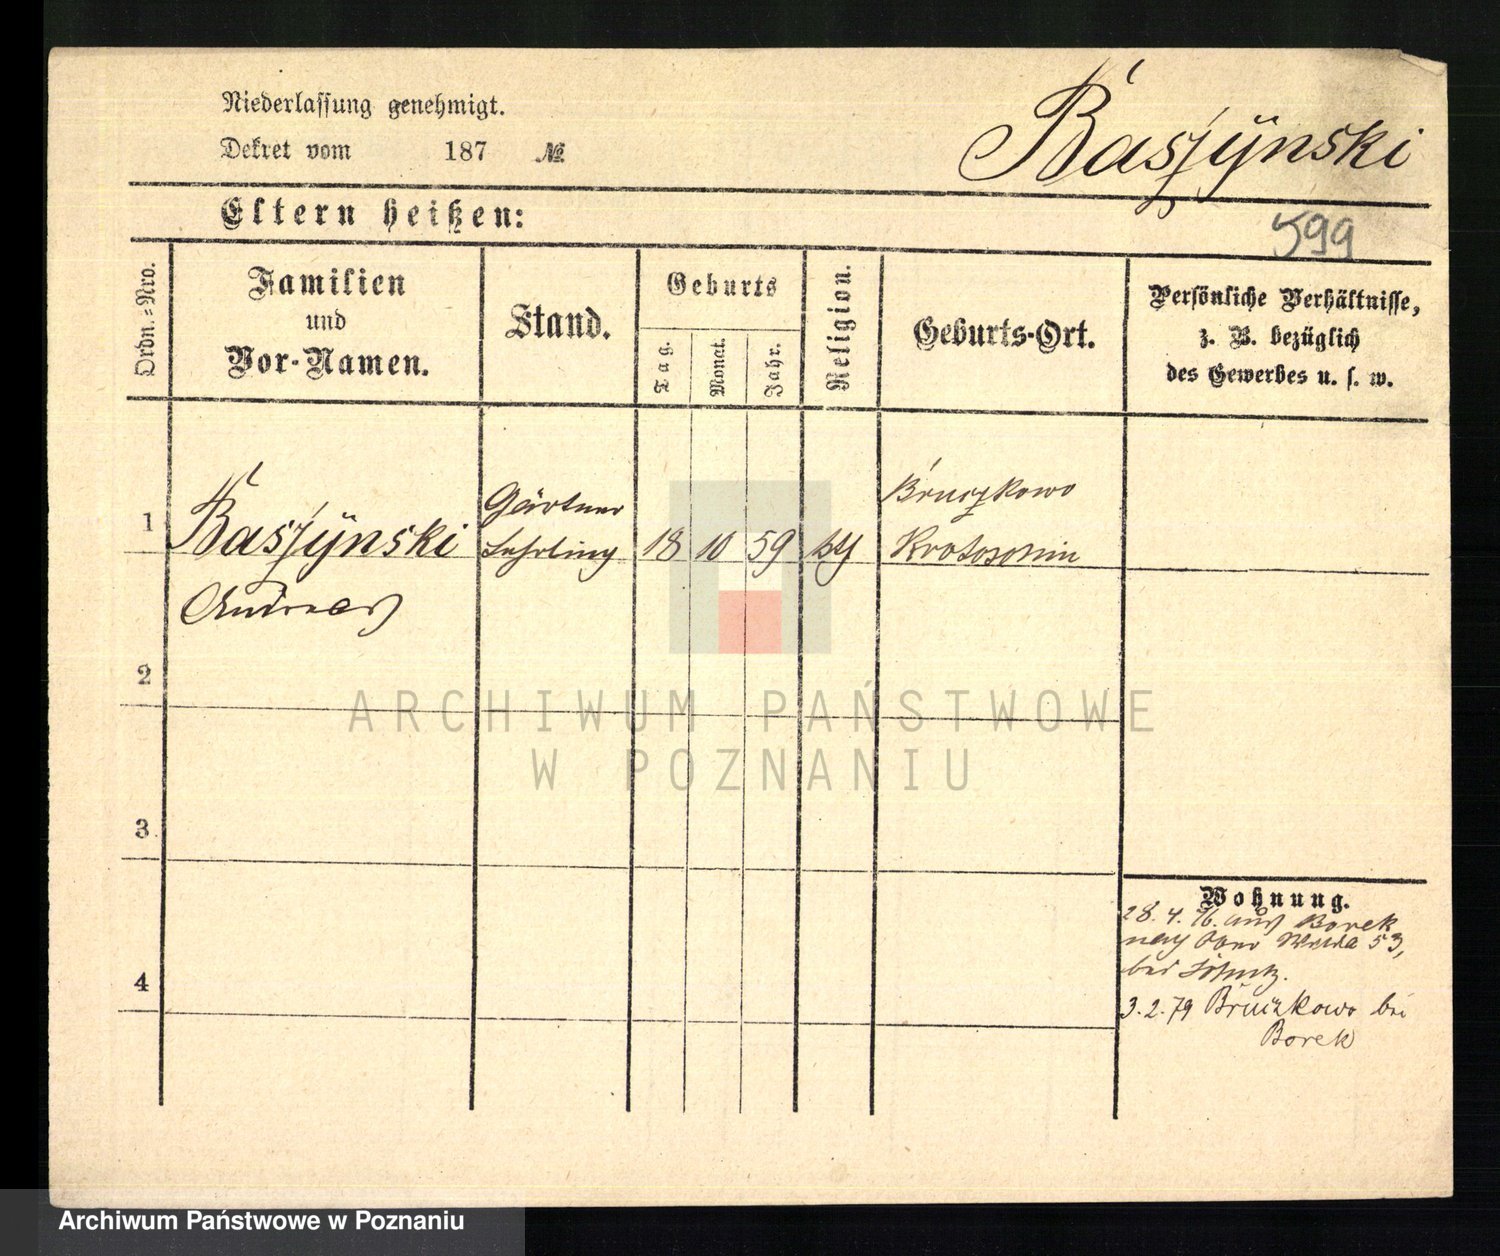 Niederlassung genehmigt.
Dekret vom 187 №
Baszynski
Eltern heißen:
599
Ordn.=Nro.
Familien
und
Vor-Namen.
Stand.
Geburts
Tag.
Monat.
Jahr.
Religion.
Geburts-Ort.
Persönliche Verhältnisse,
z. B. bezüglich
des Gewerbes u. s. w.
1
Baszynski
Andreas
Gärtner
Lehrling
18
10
59
Bruczkowo
Krotoschin
2
3
4
Wohnung.
28. 4. 76. aus Borek
nach Ober Wilda 53,
bei
3.2.79 Bruczkowo bei
Borek
ARCHIWUM PAŃSTWOWE
W POZNANIU
Archiwum Państwowe w Poznaniu